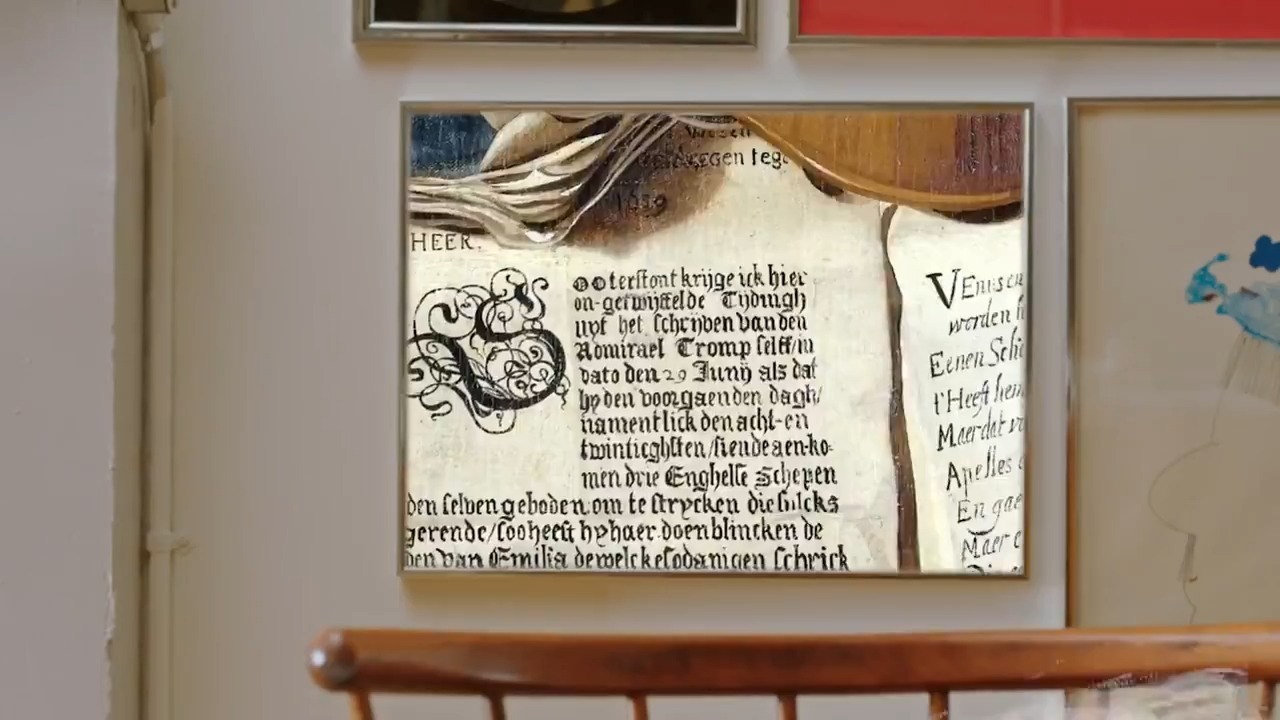 tege
1639
HEER.
Soo terstont krijge ick hier
on-getwijffelde Tijdingh
uyt het schrijven van den
Admirael Tromp selff/in
dato den 29 Junij als dat
hy den voorgaenden dagh/
namentlick den acht-en
twinticghsten/siende aen-ko-
men drie Enghelse Schepen
den selven geboden om te strycken die sulcks
gerende/soo heeft hy haer doen blincken de
den van Emilia de welcke sodanigen schrick
VEnus en
worden
Eenen Schi
t'Heeft hem
Maer dat
Apelles
En gae
Maer